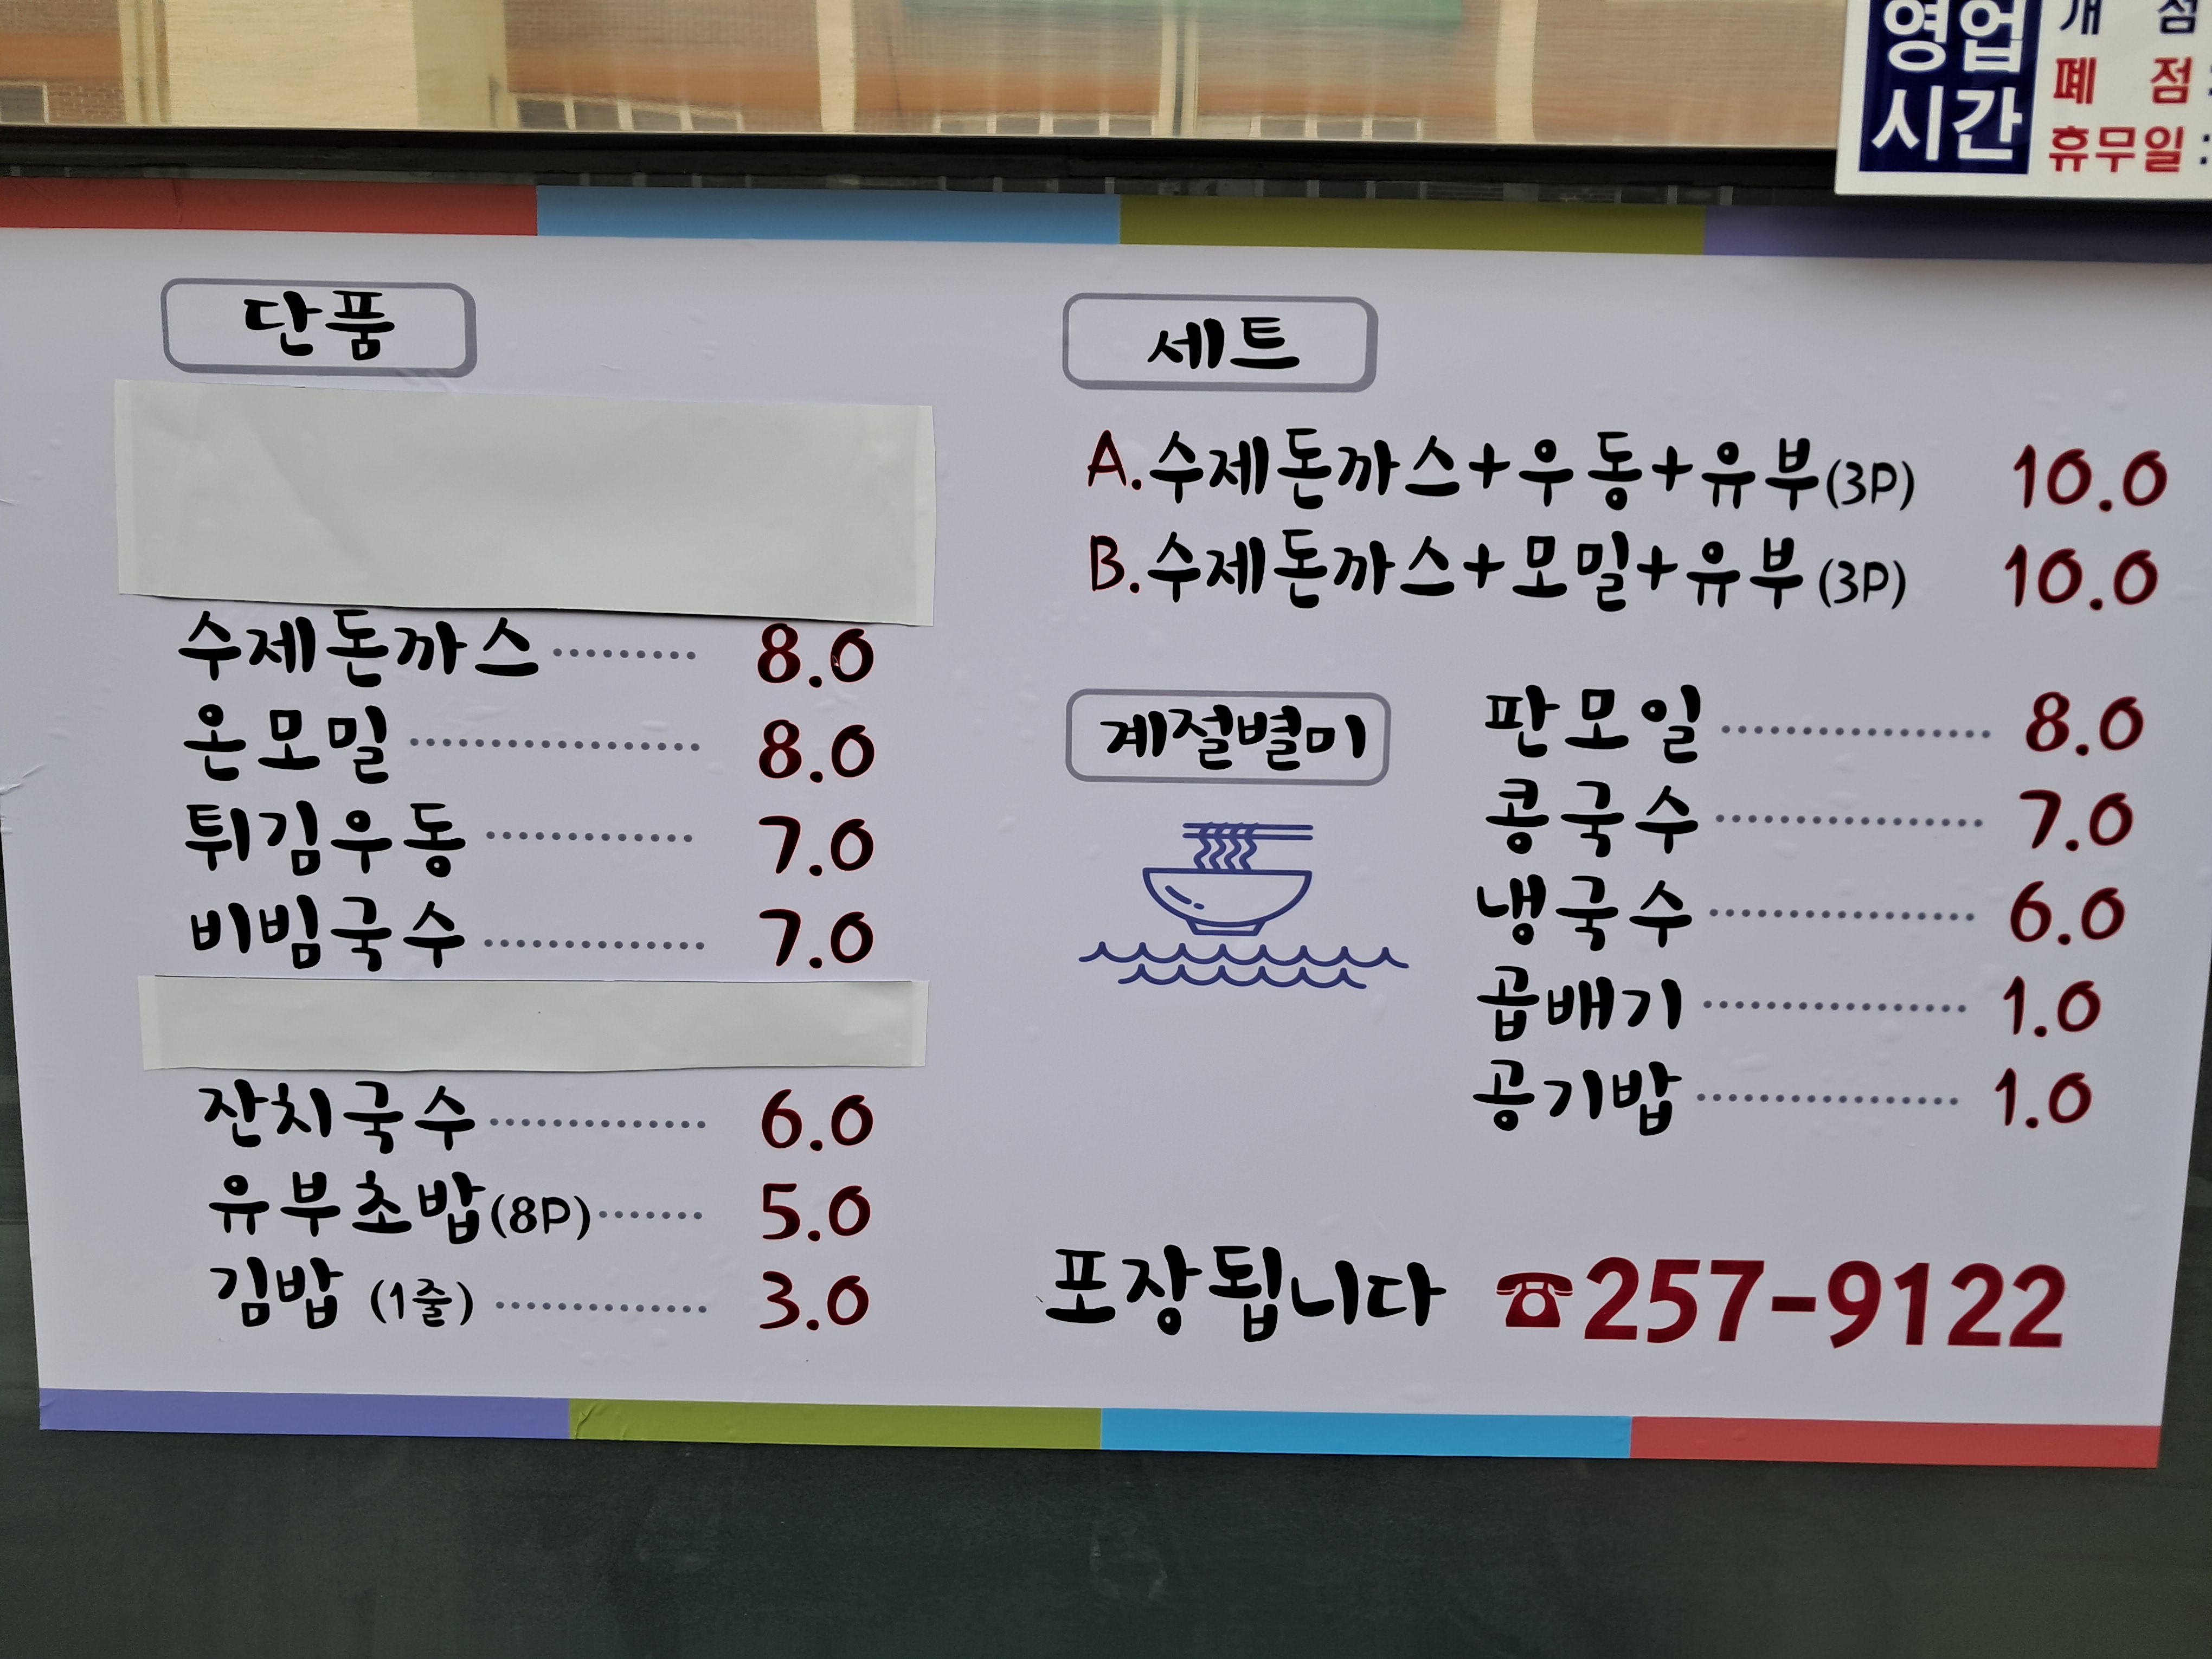 영업
시간
개 점
폐 점:
휴무일:
단품
수제돈까스 8.0
온모밀 8.0
튀김우동 7.0
비빔국수 7.0
잔치국수 6.0
유부초밥(8P) 5.0
김밥 (1줄) 3.0
세트
A.수제돈까스+우동+유부(3P) 10.0
B.수제돈까스+모밀+유부(3P) 10.0
계절별미
판모일 8.0
콩국수 7.0
냉국수 6.0
곱배기 1.0
공기밥 1.0
포장됩니다 ☎257-9122